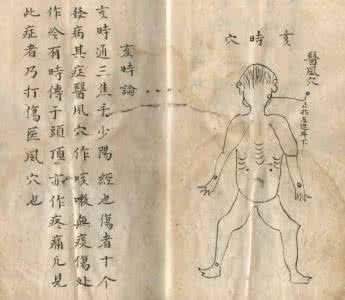 亥時穴
醫風穴
耳下
亥時論
亥時通三焦手少陽經也傷者十个
發病其症醫風穴作咳嗽無痰傷处
作冷有時傳于頭頂亦作疼痛凢見
此症者乃打傷医風穴也